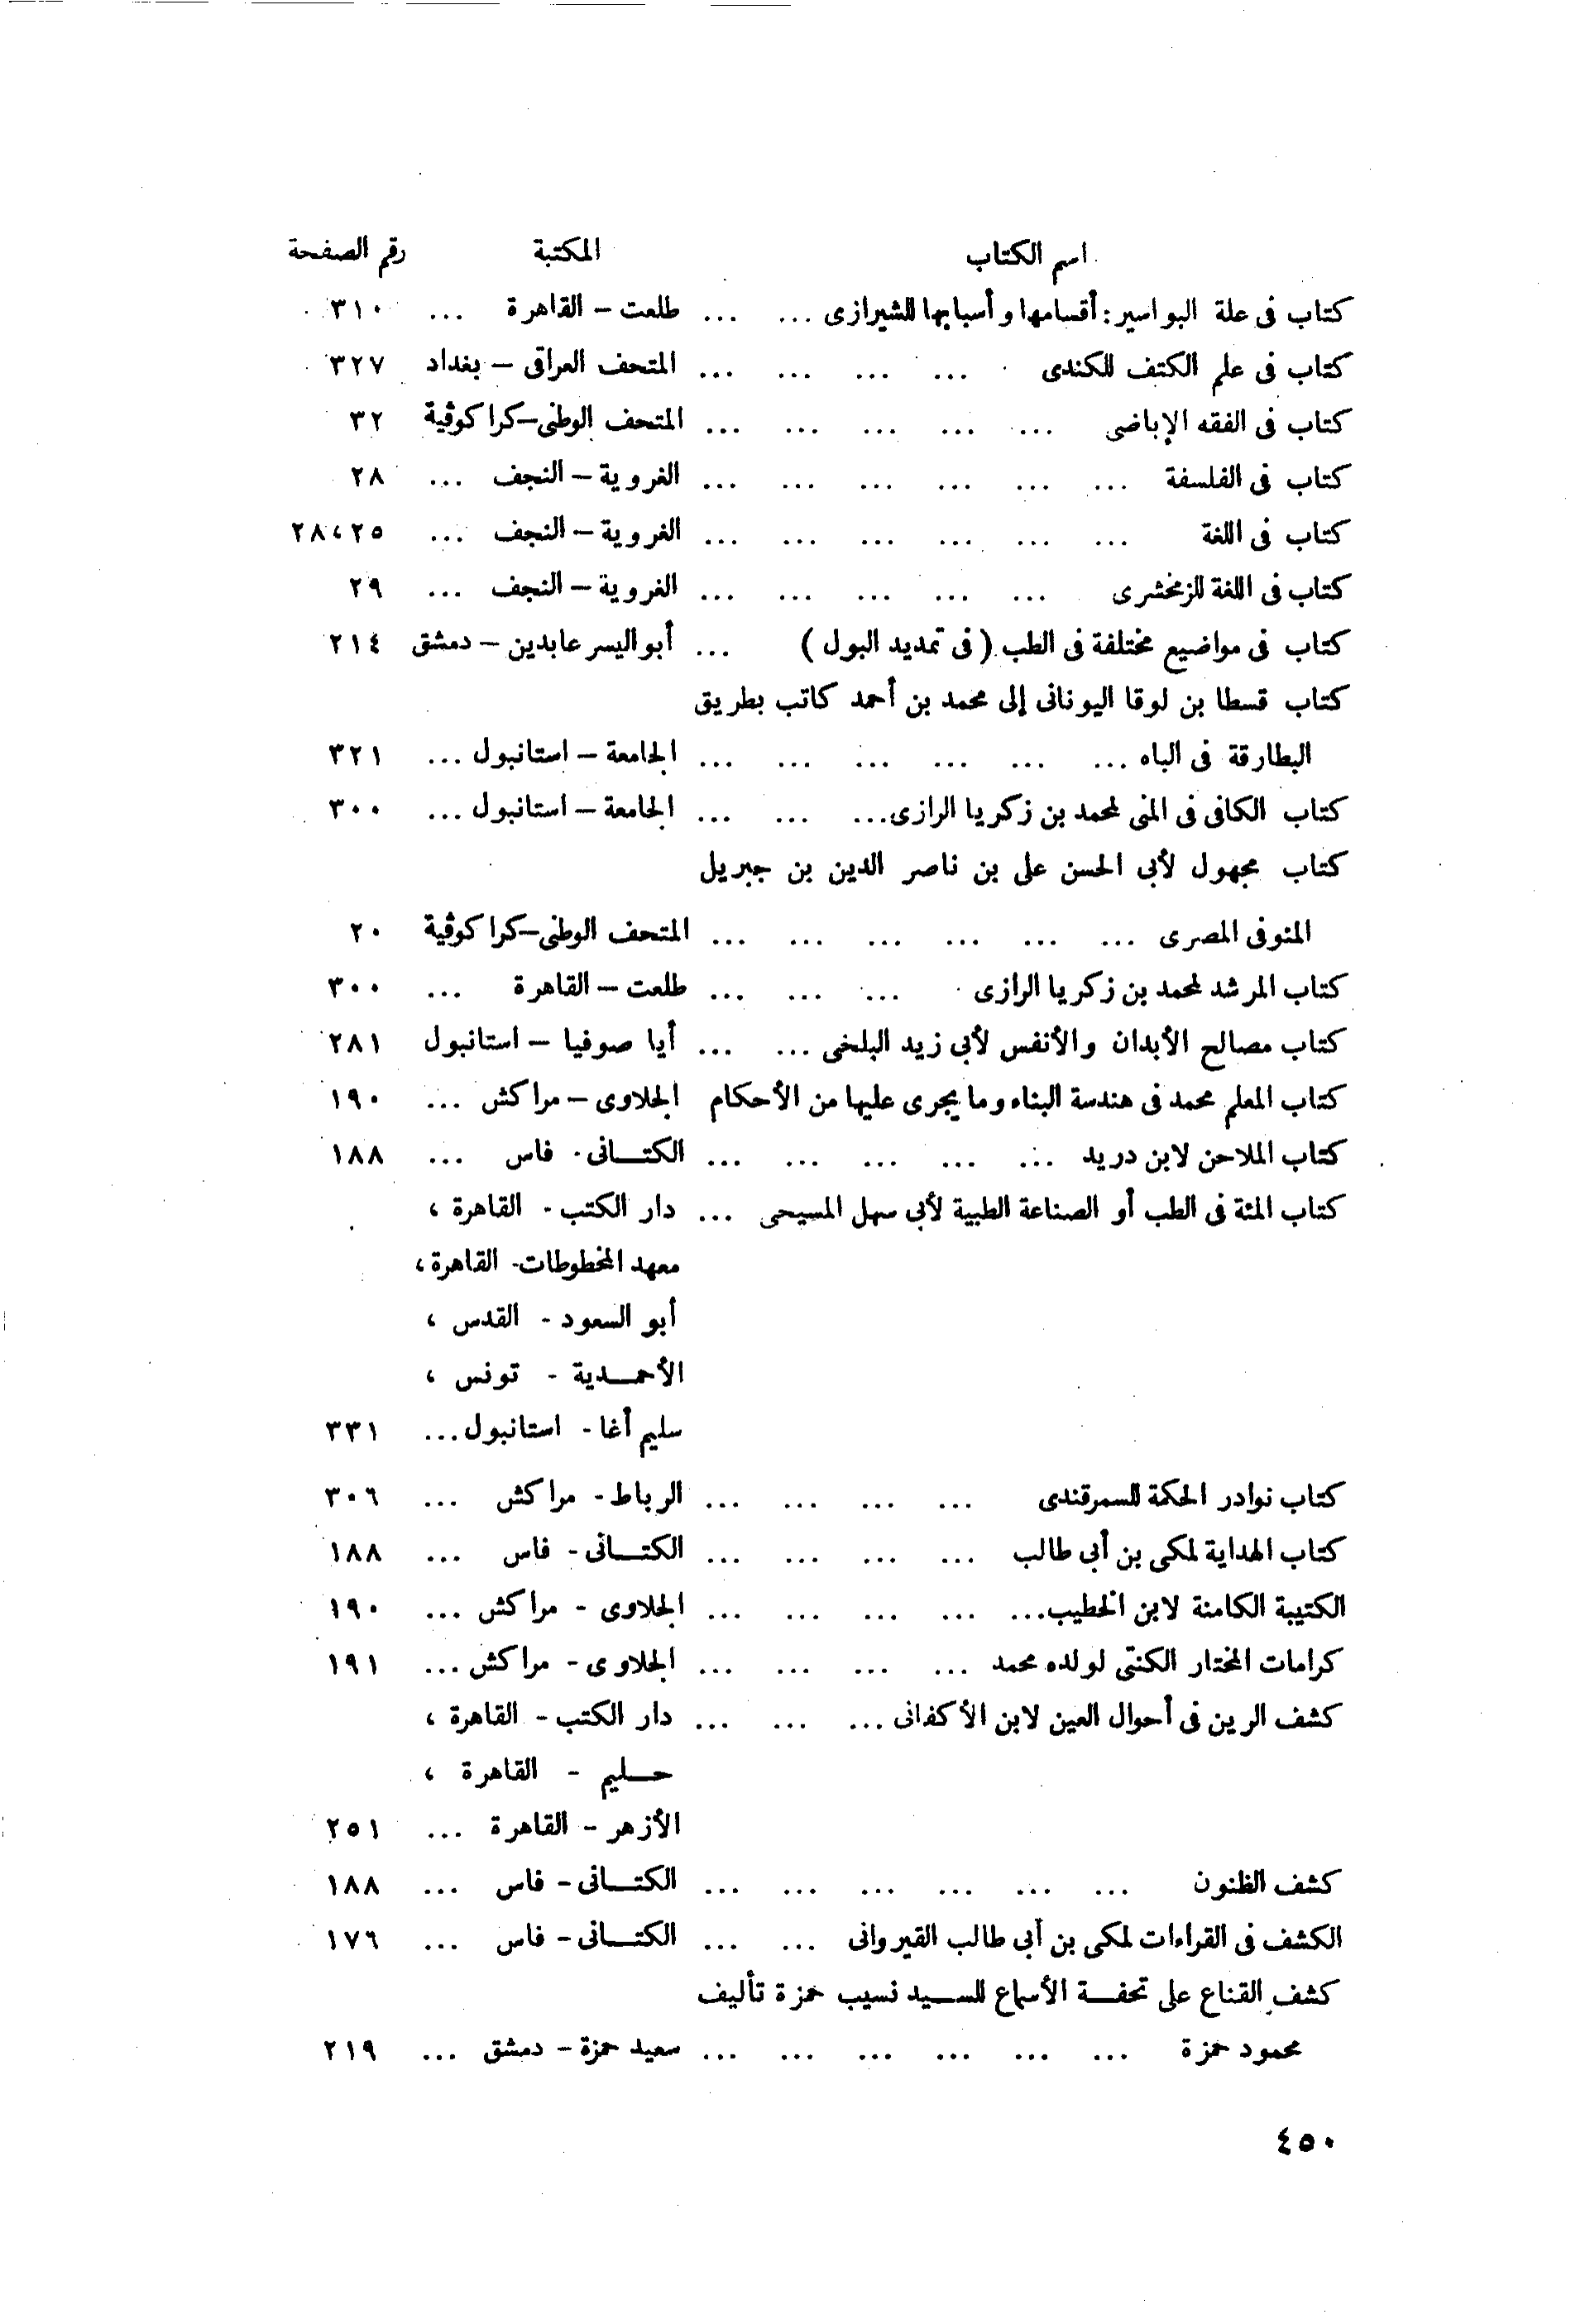 اسم الكتاب المكتبة رقم الصفحة
كتاب فى علة البواسير : أقسامها وأسبابها للشيرازى ... ... طلعت – القاهرة ... ٣١٠
كتاب فى علم الكتف للكندى ... ... ... ... المتحف العراقى – بغداد ٣٢٧
كتاب فى الفقه الإباضى ... ... ... ... ... المتحف الوطنى – كراكوڤية ٣٢
كتاب فى الفلسفة ... ... ... ... ... ... الغروية – النجف ... ٢٨
كتاب فى اللغة ... ... ... ... ... ... الغروية – النجف ... ٢٥، ٢٨
كتاب فى اللغة للزمخشرى ... ... ... ... ... الغروية – النجف ... ٢٩
كتاب فى مواضيع مختلفة فى الطب ( فى تمديد البول ) ... أبو اليسر عابدين – دمشق ٢١٤
كتاب قسطا بن لوقا اليونانى إلى محمد بن أحمد كاتب بطريق
البطارقة فى الباه ... ... ... ... ... ... الجامعة – استانبول ... ٣٢١
كتاب الكافى فى المنى لمحمد بن زكريا الرازى ... ... ... الجامعة – استانبول ... ٣٠٠
كتاب مجهول لأبى الحسن على بن ناصر الدين بن جبريل
المنوفى المصرى ... ... ... ... ... ... المتحف الوطنى – كراكوڤية ٢٠
كتاب المرشد لمحمد بن زكريا الرازى ... ... ... طلعت – القاهرة ... ٣٠٠
كتاب مصالح الأبدان والأنفس لأبى زيد البلخى ... ... أيا صوفيا – استانبول ٢٨١
كتاب المعلم محمد فى هندسة البناء وما يجرى عليها من الأحكام الجلاوى – مراكش ... ١٩٠
كتاب الملاحن لابن دريد ... ... ... ... ... الكتــانى - فاس ... ١٨٨
كتاب المئة فى الطب أو الصناعة الطبية لأبى سهل المسيحى ... دار الكتب - القاهرة ،
معهد المخطوطات - القاهرة ،
أبو السعود - القدس ،
الأحمــدية - تونس ،
سليم أغا - استانبول ... ٣٣١
كتاب نوادر الحكمة للسمرقندى ... ... ... ... الرباط - مراكش ... ٣٠٦
كتاب الهداية لمكى بن أبى طالب ... ... ... ... الكتــانى - فاس ... ١٨٨
الكتيبة الكامنة لابن الخطيب ... ... ... ... ... الجلاوى - مراكش ... ١٩٠
كرامات المختار الكنتى لولده محمد ... ... ... ... الجلاوى - مراكش ... ١٩١
كشف الرين فى أحوال العين لابن الأكفانى ... ... ... دار الكتب - القاهرة ،
حــليم - القاهرة ،
الأزهر – القاهرة ... ٢٥١
كشف الظنون ... ... ... ... ... ... الكتــانى - فاس ... ١٨٨
الكشف فى القراءات لمكى بن أبى طالب القيروانى ... ... الكتــانى - فاس ... ١٧٦
كشف القناع على تحفــة الأسماع للســيد نسيب حمزة تأليف
محمود حمزة ... ... ... ... ... ... سعيد حمزة – دمشق ... ٢١٩
٤٥٠